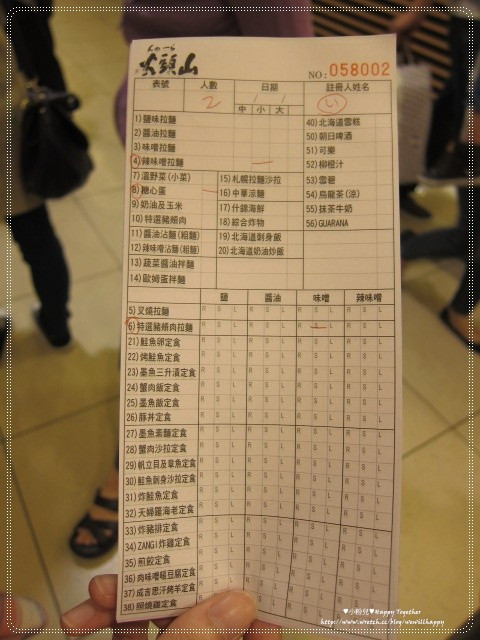 火頭山
NO: 058002
表號 人數 日期 註冊人姓名
2
中 小 大
1)鹽味拉麵 40)北海道雪糕
2)醬油拉麵 50)朝日啤酒
3)味噌拉麵 51)可樂
4)辣味噌拉麵 52)柳橙汁
7)溫野菜(小菜) 15)札幌拉麵沙拉 53)雪碧
8)糖心蛋 16)中華涼麵 54)烏龍茶(涼)
9)奶油及玉米 17)什錦海鮮 55)抹茶牛奶
10)特選豬頰肉 18)綜合炸物 56)GUARANA
11)醬油沾麵(粗麵) 19)北海道刺身飯
12)辣味噌沾麵(粗麵) 20)北海道奶油炒飯
13)蔬菜醬油拌麵
14)歐姆蛋拌麵
鹽 醬油 味噌 辣味噌
5)叉燒拉麵 R S L R S L R S L R S L
6)特選豬頰肉拉麵 R S L R S L R S L R S L
21)鮭魚卵定食 R S L R S L R S L R S L
22)烤鮭魚定食 R S L R S L R S L R S L
23)墨魚三升漬定食 R S L R S L R S L R S L
24)蟹肉飯定食 R S L R S L R S L R S L
25)墨魚飯定食 R S L R S L R S L R S L
26)豚丼定食 R S L R S L R S L R S L
27)墨魚素麵定食 R S L R S L R S L R S L
28)蟹肉沙拉定食 R S L R S L R S L R S L
29)帆立貝及章魚定食 R S L R S L R S L R S L
30)鮭魚刺身沙拉定食 R S L R S L R S L R S L
31)炸鮭魚定食 R S L R S L R S L R S L
32)天婦羅海老定食 R S L R S L R S L R S L
33)炸豬排定食 R S L R S L R S L R S L
34)ZANGI炸雞定食 R S L R S L R S L R S L
35)煎餃定食 R S L R S L R S L R S L
36)肉味噌磕豆腐定食 R S L R S L R S L R S L
37)成吉思汗烤羊定食 R S L R S L R S L R S L
38)照燒雞定食
♥小粉兒♥Happy Together
http://www.wretch.cc/blog/wewillhappy